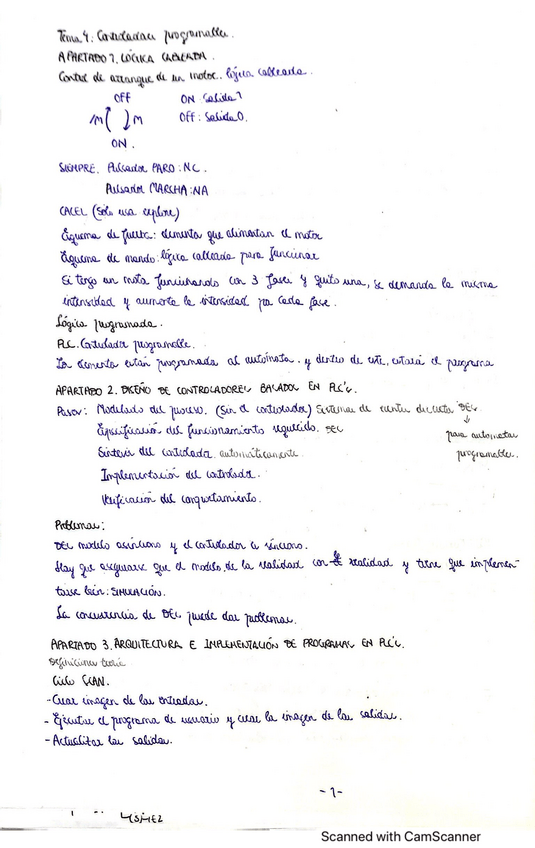 Tema 4. Controladores programables.
APARTADO 1. LÓGICA CABLEADA.
Control de arranque de un motor. lógica cableada.
OFF ON Salida 1
M M OFF: Salida 0.
ON.
SIEMPRE. Pulsador PARO: NC.
Pulsador MARCHA: NA
(Solo usa
Esquema de fuerza: elementos que alimentan el motor
Esquema de mando: lógica cableada para funcionar
Si tengo un motor funcionando con 3 fases y quito una, se demanda la misma
intensidad y aumenta la intensidad por cada fase.
Lógica programada.
PLC. Controlador programable.
Los elementos están programados al autómata. y dentro de este, estará el programa
APARTADO 2. DISEÑO DE CONTROLADORES BASADOS EN PLC's.
Pasos: Modelado del proceso. (Sin el controlador) Sistemas de eventos discretos DES
Especificación del funcionamiento requerido. DES
para autómatas
Síntesis del controlador automáticamente
programables.
Implementación del controlador.
Verificación del comportamiento.
Problemas:
DES modelo asíncrono y el controlador es síncrono.
Hay que asegurarse que el modelo de la realidad con la realidad y tiene que implemen-
tarse bien: SIMULACIÓN.
La concurrencia de DES puede dar problemas.
APARTADO 3. ARQUITECTURA E IMPLEMENTACIÓN DE PROGRAMAS EN PLC's.
Definiciones teoría
Ciclo SCAN.
- Crear imagen de las entradas.
- Ejecutar el programa de usuario y crear la imagen de las salidas.
- Actualizar las salidas.
-1-
Scanned with CamScanner